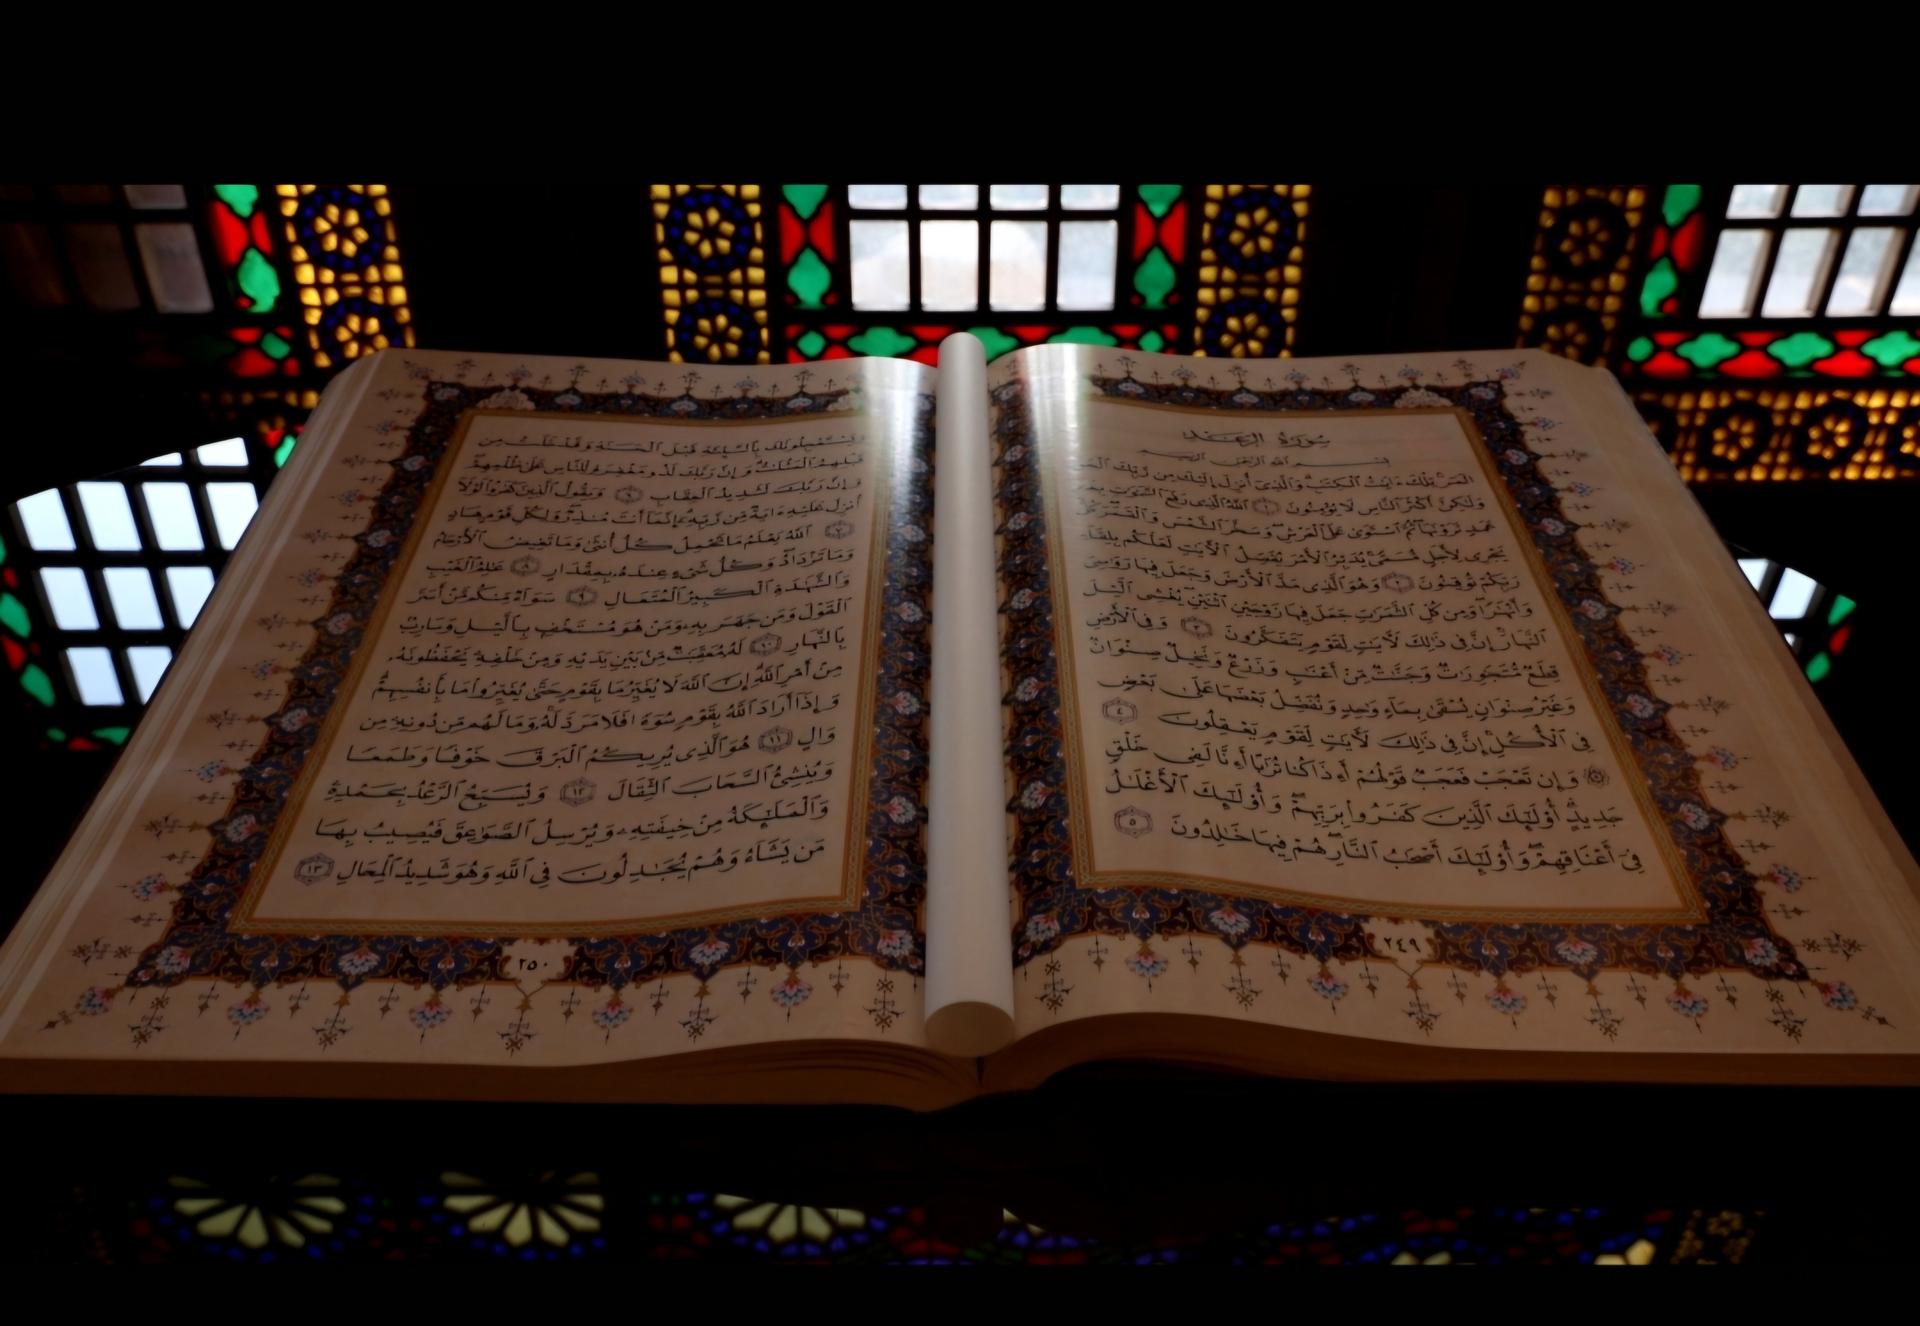 سُورَةُ الرَّعْدِ
بِسْمِ اللَّهِ الرَّحْمَٰنِ الرَّحِيمِ
الٓمٓر تِلْكَ ءَايَٰتُ ٱلْكِتَٰبِ وَٱلَّذِىٓ أُنزِلَ إِلَيْكَ مِن رَّبِّكَ ٱلْحَقُّ
وَلَٰكِنَّ أَكْثَرَ ٱلنَّاسِ لَا يُؤْمِنُونَ ١ ٱللَّهُ ٱلَّذِى رَفَعَ ٱلسَّمَٰوَٰتِ بِغَيْرِ
عَمَدٍ تَرَوْنَهَا ثُمَّ ٱسْتَوَىٰ عَلَى ٱلْعَرْشِ وَسَخَّرَ ٱلشَّمْسَ وَٱلْقَمَرَ كُلٌّ
يَجْرِى لِأَجَلٍ مُّسَمًّى يُدَبِّرُ ٱلْأَمْرَ يُفَصِّلُ ٱلْأَيَٰتِ لَعَلَّكُم بِلِقَآءِ
رَبِّكُمْ تُوقِنُونَ ٢ وَهُوَ ٱلَّذِى مَدَّ ٱلْأَرْضَ وَجَعَلَ فِيهَا رَوَٰسِىَ
وَأَنْهَٰرًا وَمِن كُلِّ ٱلثَّمَرَٰتِ جَعَلَ فِيهَا زَوْجَيْنِ ٱثْنَيْنِ يُغْشِى ٱلَّيْلَ
ٱلنَّهَارَ إِنَّ فِى ذَٰلِكَ لَأَيَٰتٍ لِّقَوْمٍ يَتَفَكَّرُونَ ٣ وَفِى ٱلْأَرْضِ
قِطَعٌ مُّتَجَٰوِرَٰتٌ وَجَنَّٰتٌ مِّنْ أَعْنَٰبٍ وَزَرْعٌ وَنَخِيلٌ صِنْوَانٌ
وَغَيْرُ صِنْوَانٍ يُسْقَىٰ بِمَآءٍ وَٰحِدٍ وَنُفَضِّلُ بَعْضَهَا عَلَىٰ بَعْضٍ
فِى ٱلْأُكُلِ إِنَّ فِى ذَٰلِكَ لَأَيَٰتٍ لِّقَوْمٍ يَعْقِلُونَ ٤
وَإِن تَعْجَبْ فَعَجَبٌ قَوْلُهُمْ أَءِذَا كُنَّا تُرَٰبًا أَءِنَّا لَفِى خَلْقٍ
جَدِيدٍ أُو۟لَٰٓئِكَ ٱلَّذِينَ كَفَرُوا۟ بِرَبِّهِمْ وَأُو۟لَٰٓئِكَ ٱلْأَغْلَٰلُ
فِىٓ أَعْنَاقِهِمْ وَأُو۟لَٰٓئِكَ أَصْحَٰبُ ٱلنَّارِ هُمْ فِيهَا خَٰلِدُونَ ٥
٢٤٩
وَيَسْتَعْجِلُونَكَ بِٱلسَّيِّئَةِ قَبْلَ ٱلْحَسَنَةِ وَقَدْ خَلَتْ مِن
قَبْلِهِمُ ٱلْمَثُلَٰتُ وَإِنَّ رَبَّكَ لَذُو مَغْفِرَةٍ لِّلنَّاسِ عَلَىٰ ظُلْمِهِمْ
وَإِنَّ رَبَّكَ لَشَدِيدُ ٱلْعِقَابِ ٦ وَيَقُولُ ٱلَّذِينَ كَفَرُوا۟ لَوْلَآ
أُنزِلَ عَلَيْهِ ءَايَةٌ مِّن رَّبِّهِۦٓ إِنَّمَآ أَنتَ مُنذِرٌ وَلِكُلِّ قَوْمٍ هَادٍ
٧ ٱللَّهُ يَعْلَمُ مَا تَحْمِلُ كُلُّ أُنثَىٰ وَمَا تَغِيضُ ٱلْأَرْحَامُ
وَمَا تَزْدَادُ وَكُلُّ شَىْءٍ عِندَهُۥ بِمِقْدَارٍ ٨ عَٰلِمُ ٱلْغَيْبِ
وَٱلشَّهَٰدَةِ ٱلْكَبِيرُ ٱلْمُتَعَالِ ٩ سَوَآءٌ مِّنكُم مَّنْ أَسَرَّ
ٱلْقَوْلَ وَمَن جَهَرَ بِهِۦ وَمَنْ هُوَ مُسْتَخْفٍۭ بِٱلَّيْلِ وَسَارِبٌۢ
بِٱلنَّهَارِ ١٠ لَهُۥ مُعَقِّبَٰتٌ مِّنۢ بَيْنِ يَدَيْهِ وَمِنْ خَلْفِهِۦ يَحْفَظُونَهُۥ
مِنْ أَمْرِ ٱللَّهِ إِنَّ ٱللَّهَ لَا يُغَيِّرُ مَا بِقَوْمٍ حَتَّىٰ يُغَيِّرُوا۟ مَا بِأَنفُسِهِمْ
وَإِذَآ أَرَادَ ٱللَّهُ بِقَوْمٍ سُوٓءًا فَلَا مَرَدَّ لَهُۥ وَمَا لَهُم مِّن دُونِهِۦ مِن
وَالٍ ١١ هُوَ ٱلَّذِى يُرِيكُمُ ٱلْبَرْقَ خَوْفًا وَطَمَعًا
وَيُنشِئُ ٱلسَّحَابَ ٱلثِّقَالَ ١٢ وَيُسَبِّحُ ٱلرَّعْدُ بِحَمْدِهِۦ
وَٱلْمَلَٰٓئِكَةُ مِنْ خِيفَتِهِۦ وَيُرْسِلُ ٱلصَّوَٰعِقَ فَيُصِيبُ بِهَا
مَن يَشَآءُ وَهُمْ يُجَٰدِلُونَ فِى ٱللَّهِ وَهُوَ شَدِيدُ ٱلْمِحَالِ ١٣
٢٥٠